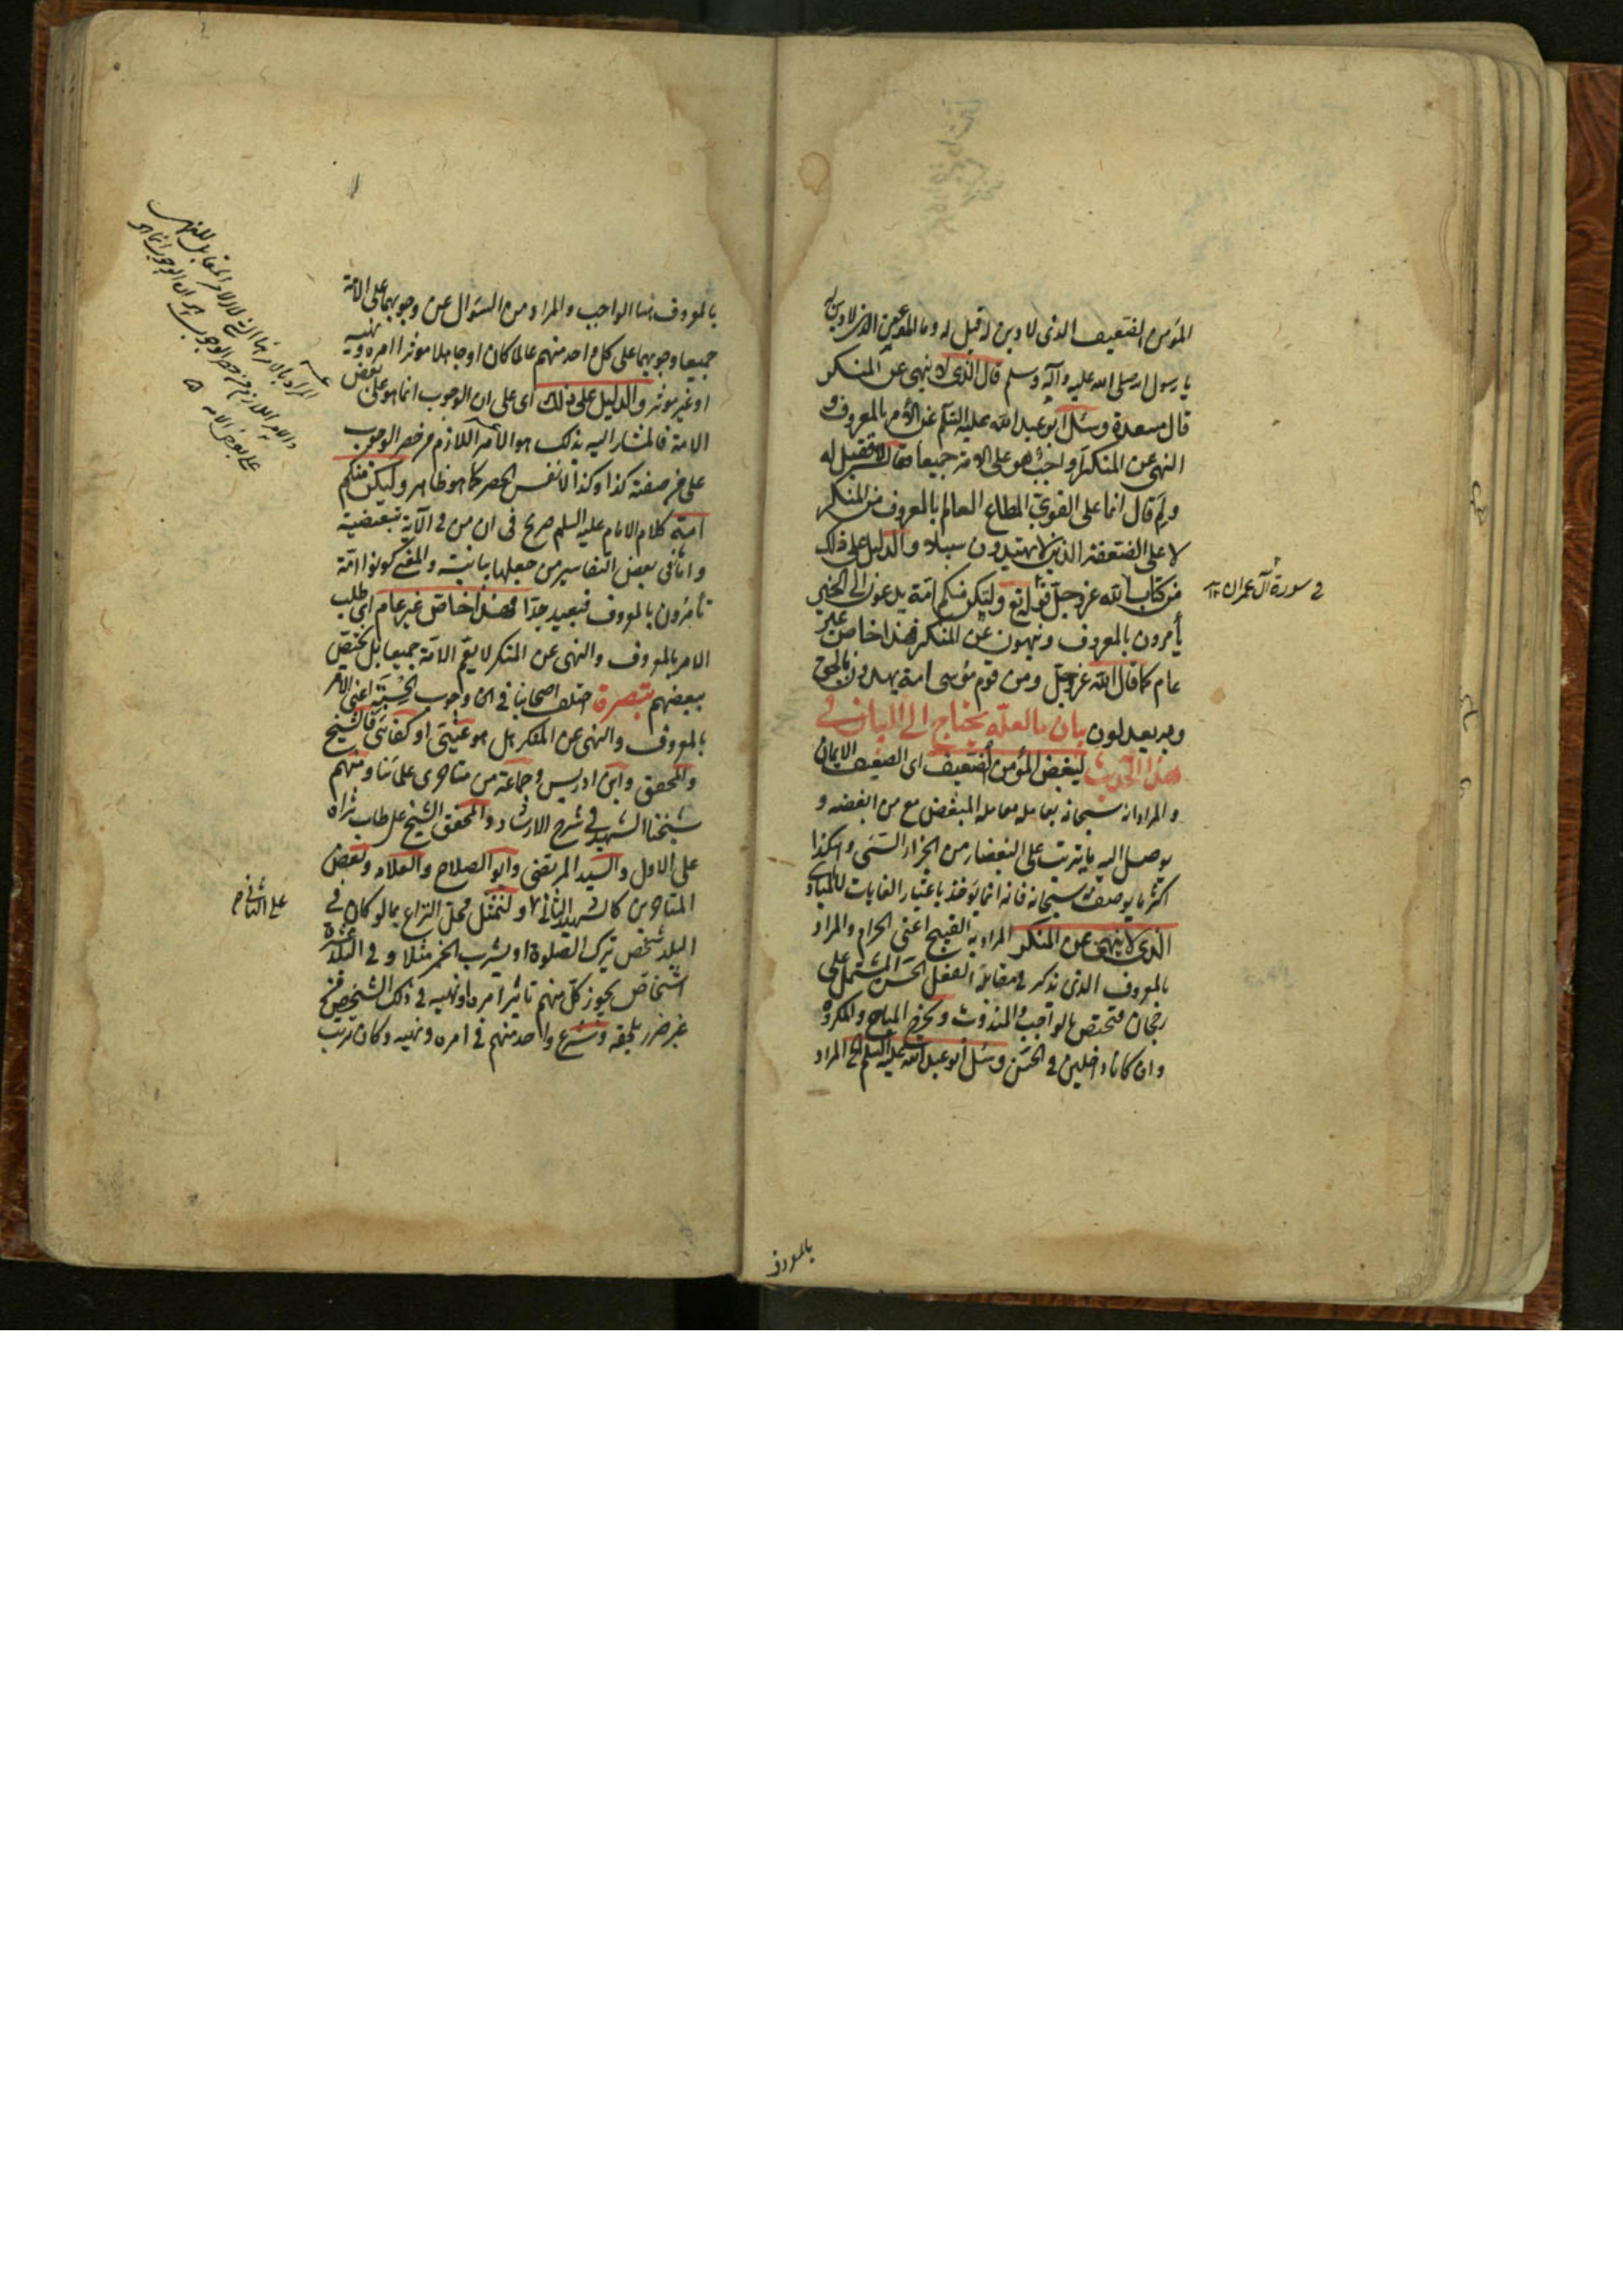 المؤمن الضعيف الذی لا دین له فقیل له وما المؤمن الذی لا دین له
یا رسول الله صلی الله علیه وآله وسلم قال الذی لا ینهی عن المنکر
قال مسعدة وسئل ابو عبد الله علیه السلم عن الامر بالمعروف و
النهی عن المنکر أواجب هو علی الامة جمیعا فقال لا فقیل له
ولم قال انما علی القوی المطاع العالم بالمعروف من المنکر
لا علی الضعفة الذین لا یهتدون سبیلا والدلیل علی ذلک
من کتاب الله عز وجل قوله تع ولتکن منکم امة یدعون الی الخیر
فی سورة آل عمران
یأمرون بالمعروف وینهون عن المنکر فهذا خاص غیر
عام کما قال الله عز وجل ومن قوم موسی امة یهدون بالحق
وبه یعدلون بیان ما لعله یحتاج الی البیان فی
هذا الحدیث لیبغض المؤمن الضعیف ای الضعیف الایمان
والمراد انه سبحانه یعامله معاملة المبغض مع من ابغضه و
یوصل الیه ما یترتب علی البغضاء من الجزاء السیئ وهکذا
اکثر ما یوصف به سبحانه فانه انما یؤخذ باعتبار الغایات لا المبادی
الذی لا ینهی عن المنکر المراد به القبیح اعنی الحرام والمراد
بالمعروف الذی یذکر فی مقابله الفعل الحسن المشتمل علی
رجحان فیختص بالواجب والمندوب ویخرج المباح والمکروه
وان کانا داخلین فی الحسن وسئل ابو عبد الله علیه السلم الخ المراد
بالمعروف
بالمعروف هنا الواجب والمراد من السؤال عن وجوبهما علی الامة
جمیعا وجوبهما علی کل احد منهم عالما کان او جاهلا موثرا امره ونهیه
او غیر موثر والدلیل علی ذلک ای علی ان الوجوب انما هو علی بعض
الامة فالمشار الیه بذلک هو الامر اللازم من حصر الوجوب
علی من صفته کذا وکذا لا نفس الحصر کما هو ظاهر ولتکن منکم
امة کلام الامام علیه السلم صریح فی ان من فی الآیة تبعیضیة
واما فی بعض التفاسیر من جعلها بیانیة والمعنی کونوا امة
تأمرون بالمعروف فبعید جدا فهذا خاص غیر عام ای طلب
الامر بالمعروف والنهی عن المنکر لا یعم الامة جمیعا بل یختص
ببعضهم تبصرة اختلف اصحابنا فی ان وجوب الحسبة اعنی الامر
بالمعروف والنهی عن المنکر هل هو عینی او کفائی فالشیخ
والمحقق وابن ادریس وجماعة من متاخری علمائنا ومنهم
شیخنا الشهید فی شرح الارشاد والمحقق الشیخ علی طاب ثراه
علی الاول والسید المرتضی وابو الصلاح والعلامه وبعض
المتاخرین کالشهید الثانی ولنمثل محل النزاع بما لو کان فی
علی الثانی
البلد شخص ترک الصلوة او یشرب الخمر مثلا وفی البلد عشرة
اشخاص یجوز کل منهم تاثیر امره او نهیه فی ذلک الشخص من
غیر ضرر یلحقه وشرع واحد منهم فی امره ونهیه وکان ترتب